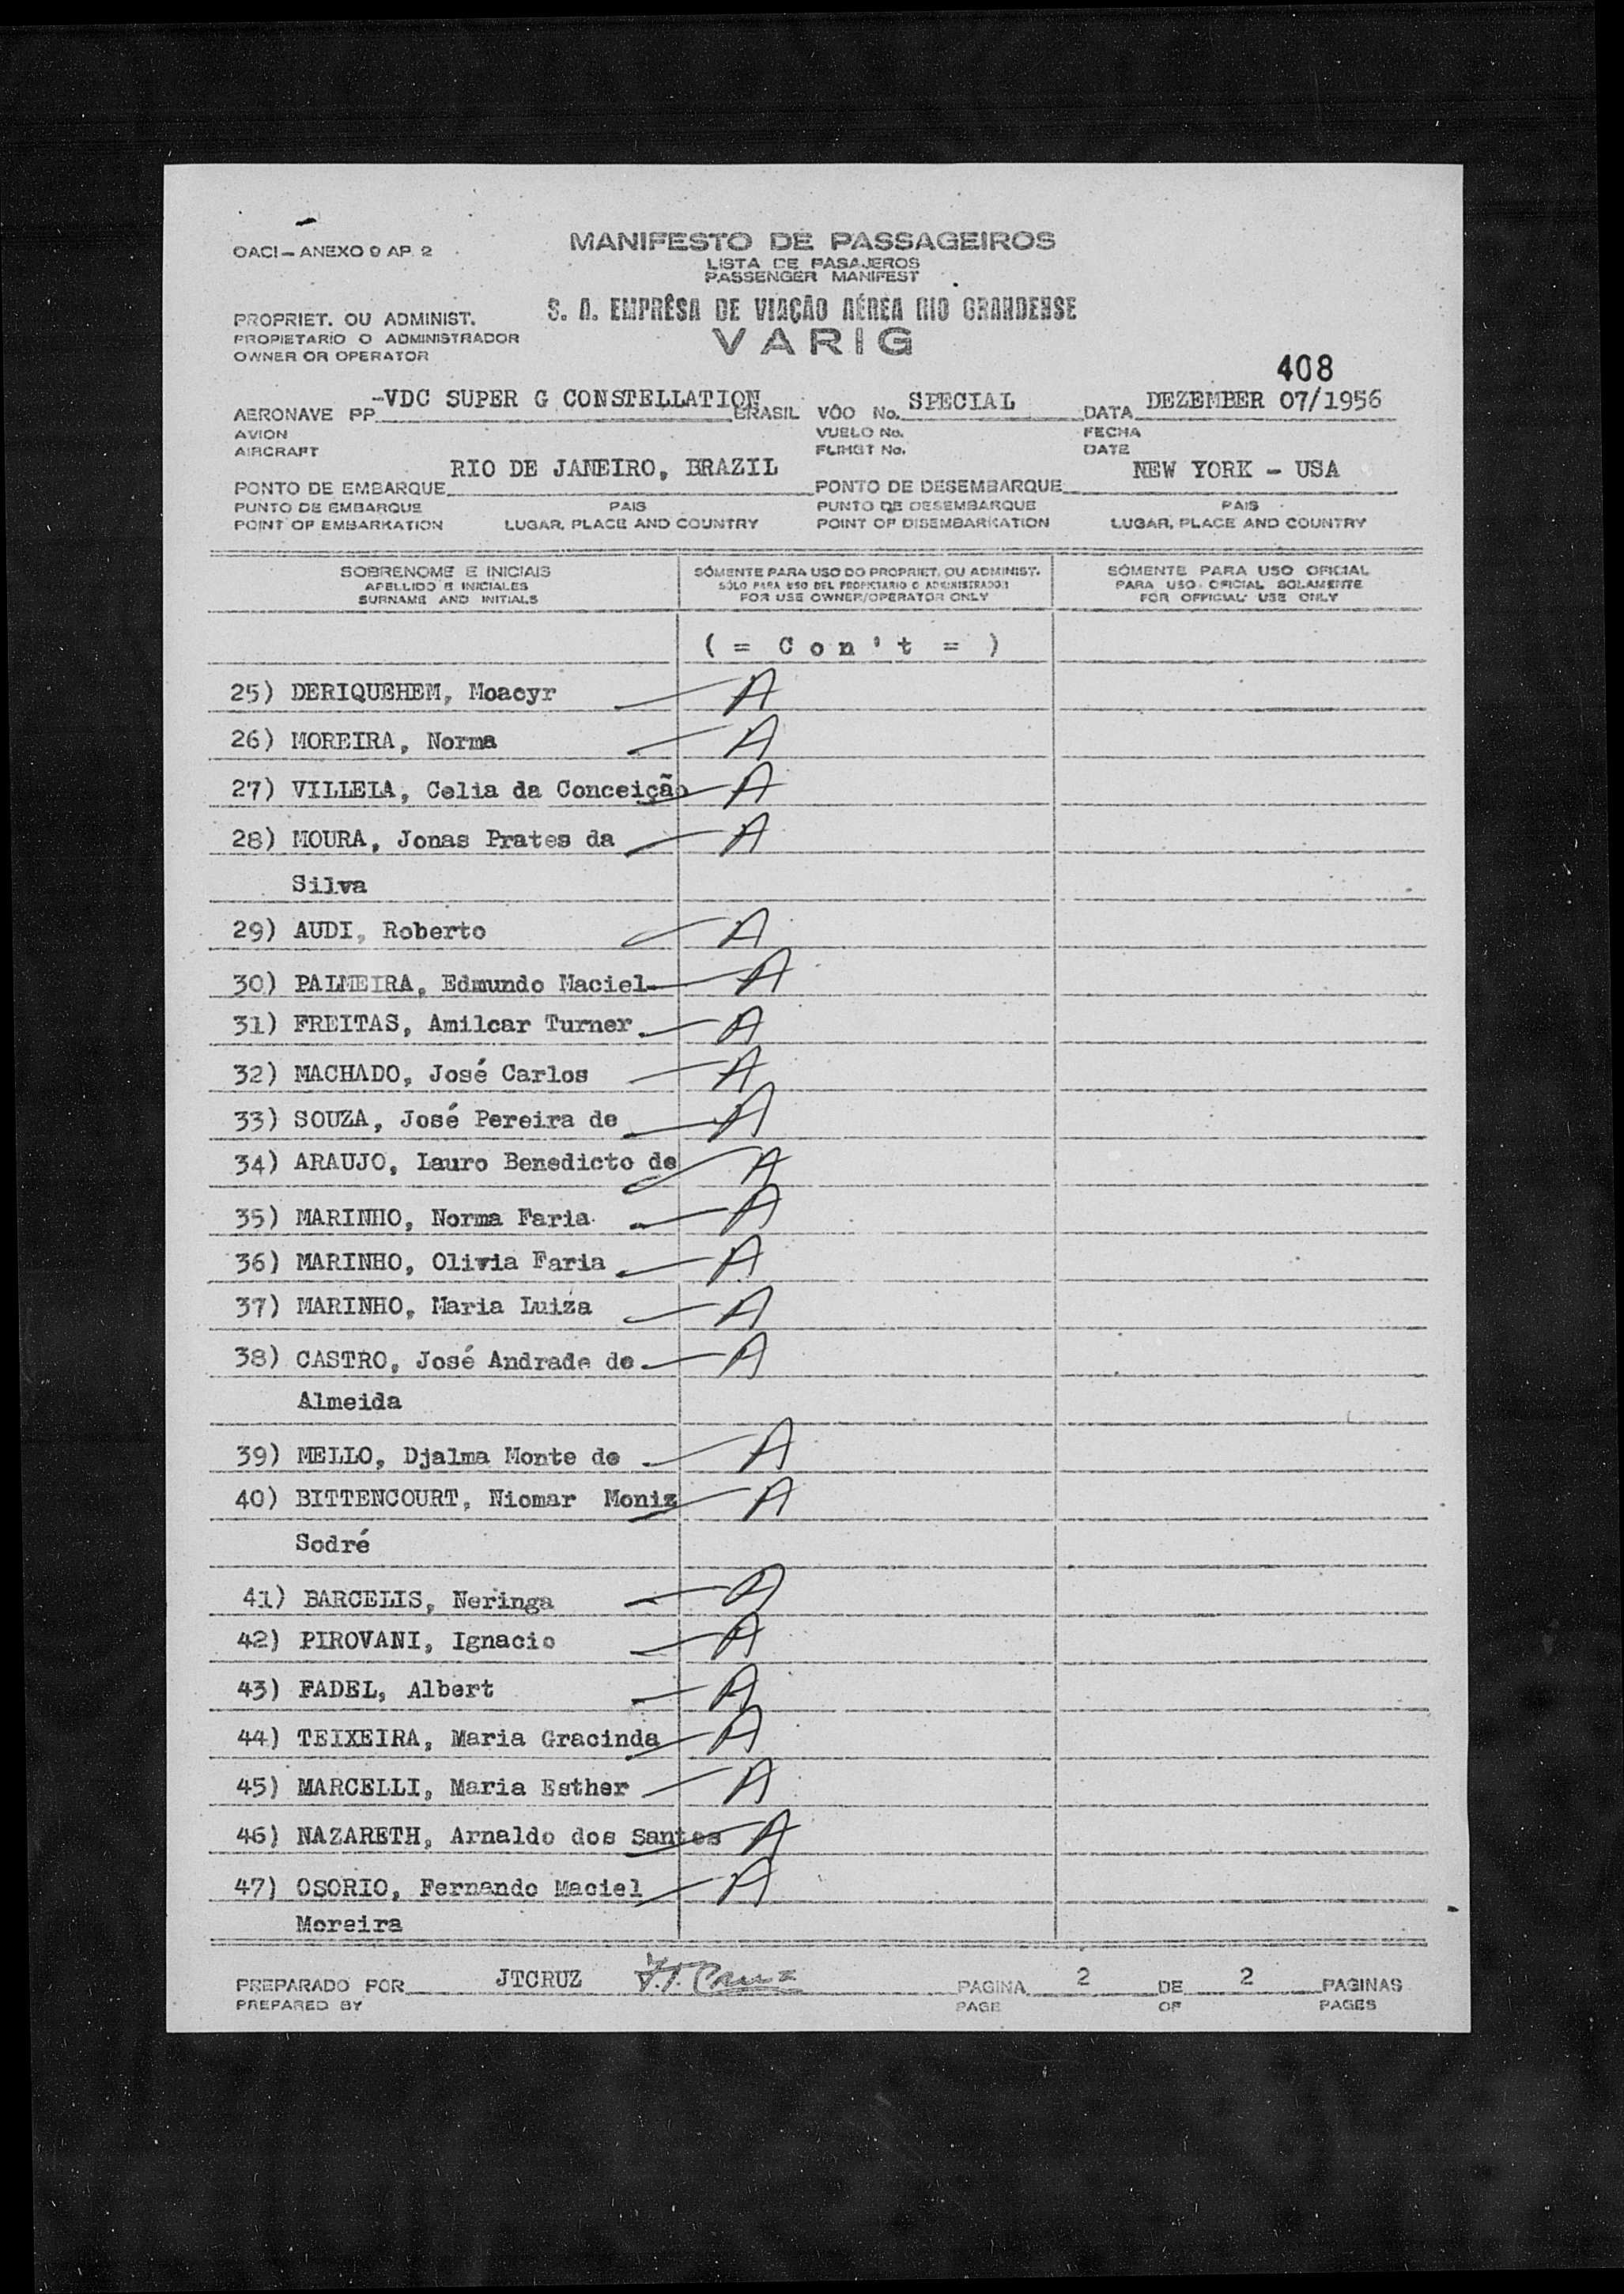 OACI – ANEXO 9 AP. 2
MANIFESTO DE PASSAGEIROS
LISTA DE PASAJEROS
PASSENGER MANIFEST
S. A. EMPRÊSA DE VIAÇÃO AÉREA RIO GRANDENSE
VARIG
PROPRIET. OU ADMINIST.
PROPIETARIO O ADMINISTRADOR
OWNER OR OPERATOR
408
AERONAVE PP -VDC SUPER G CONSTELLATION BRASIL VÔO No. SPECIAL DATA DEZEMBER 07/1956
AVION VUELO No. FECHA
AIRCRAFT FLIHGT No. DATE
PONTO DE EMBARQUE RIO DE JANEIRO, BRAZIL PONTO DE DESEMBARQUE NEW YORK - USA
PUNTO DE EMBARQUE PAIS PUNTO DE DESEMBARQUE PAIS
POINT OF EMBARKATION LUGAR, PLACE AND COUNTRY POINT OF DISEMBARKATION LUGAR, PLACE AND COUNTRY
SOBRENOME E INICIAIS
APELLIDO E INICIALES
SURNAME AND INITIALS
SÓMENTE PARA USO DO PROPRIET. OU ADMINIST.
SÓLO PARA USO DEL PROPIETARIO O ADMINISTRADOR
FOR USE OWNER/OPERATOR ONLY
SÓMENTE PARA USO OFICIAL
PARA USO OFICIAL SOLAMENTE
FOR OFFICIAL USE ONLY
( = C o n ' t = )
25) DERIQUEHEM, Moacyr A
26) MOREIRA, Norma A
27) VILLELA, Celia da Conceição A
28) MOURA, Jonas Prates da A
Silva
29) AUDI, Roberto A
30) PALMEIRA, Edmundo Maciel A
31) FREITAS, Amilcar Turner A
32) MACHADO, José Carlos A
33) SOUZA, José Pereira de A
34) ARAUJO, Lauro Benedicto de A
35) MARINHO, Norma Faria A
36) MARINHO, Olivia Faria A
37) MARINHO, Maria Luiza A
38) CASTRO, José Andrade de A
Almeida
39) MELLO, Djalma Monte de A
40) BITTENCOURT, Niomar Moniz A
Sodré
41) BARCELIS, Neringa A
42) PIROVANI, Ignacio A
43) FADEL, Albert A
44) TEIXEIRA, Maria Gracinda A
45) MARCELLI, Maria Esther A
46) NAZARETH, Arnaldo dos Santos A
47) OSORIO, Fernando Maciel A
Moreira
PREPARADO POR JTCRUZ J.T. Cruz PAGINA 2 DE 2 PAGINAS
PREPARED BY PAGE OF PAGES